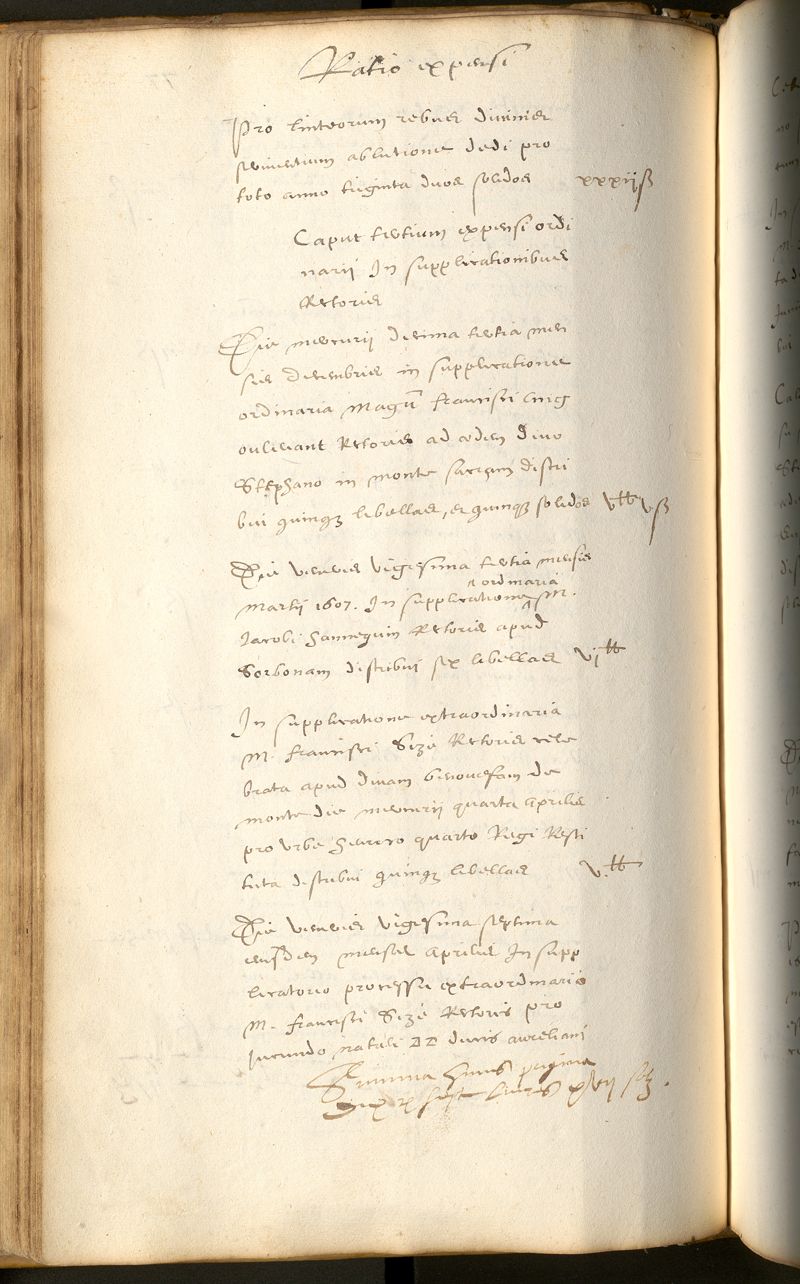 Ratio expensi
Pro linteorum rebus divinis
servientium ablutione dedi pro
toto anno triginta duos solidos xxxij ß
Caput tertium expensi ordi
narii In supplicationibus
Rectoris
Die mercurij decima tertia men
sis decembris in supplicatione
ordinaria Magri francisci
Rectoris ad ædem divo
Stephano in monte sacram distri
bui quinq; libellas, et quinq; solidos v tt v ß
Die veneris vigesima tertia mensis
martij 1607. In supplicatione ordinaria M.
Jacobi hannequin Rectoris apud
Sorbonam distribui sex libellas vj tt
In supplicatione extraordinaria
M. francisci Sizé Rectoris cele
brata apud divam Genovefam de
monte die mercurij quarta aprilis
pro Urbe henrico quarto Regi Resti
tuta distribui quinq; libellas v. tt
Die veneris vigesima septima
eiusdem mensis aprilis In supp
licatorio processu extraordinario
M. francisci Sizé Rectoris pro
jucundo natali DD ducis aureliani
Summa hujus paginæ